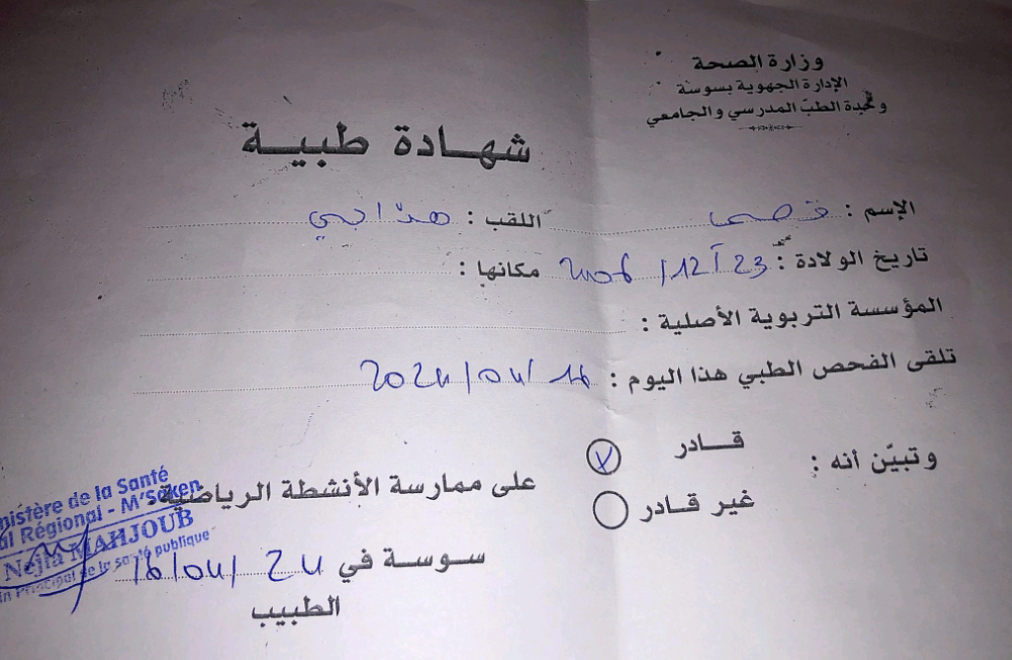 وزارة الصحة
الإدارة الجهوية بسوسة
وحدة الطبّ المدرسي والجامعي
شهادة طبية
الإسم : قصي اللقب : هذابي
تاريخ الولادة : 23 / 12 / 2006 مكانها :
المؤسسة التربوية الأصلية :
تلقى الفحص الطبي هذا اليوم : 16 / 04 / 2024
وتبيّن أنه :
قادر
غير قادر
على ممارسة الأنشطة الرياضية
سوسة في 16/04/24
الطبيب
nistère de la Santé
al Régional - M'Saken
Nejla MAHJOUB
in Principal de la santé publique